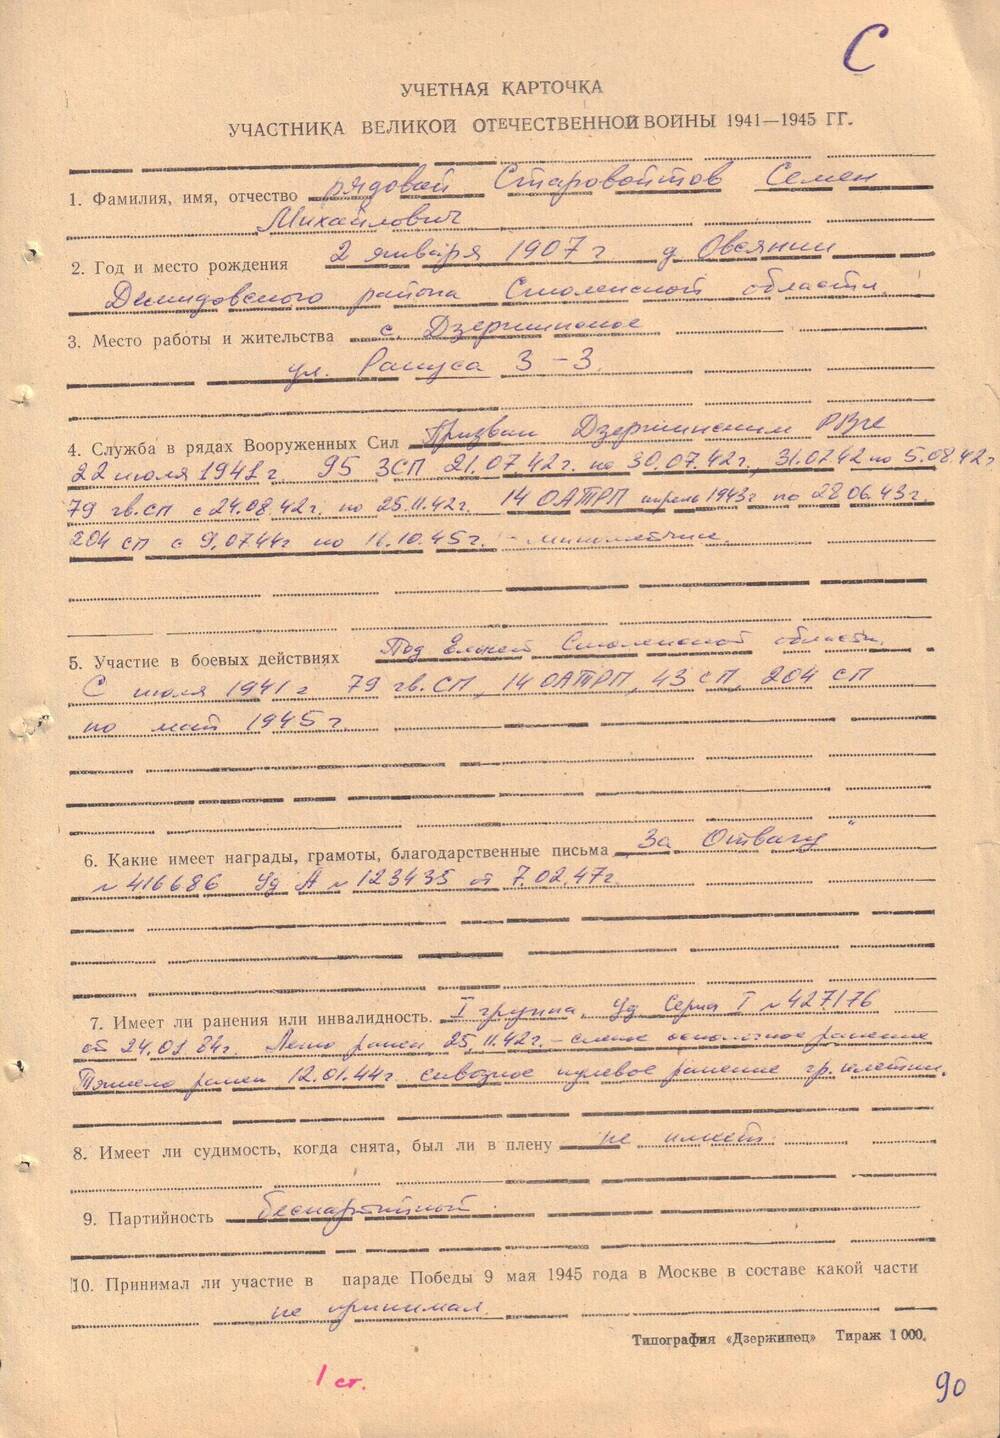 С
УЧЕТНАЯ КАРТОЧКА
УЧАСТНИКА ВЕЛИКОЙ ОТЕЧЕСТВЕННОЙ ВОЙНЫ 1941—1945 ГГ.
1. Фамилия, имя, отчество рядовой Старовойтов Семен
Михайлович
2. Год и место рождения 2 января 1907 г д. Овсянки
Демидовского района Смоленской области.
3. Место работы и жительства с. Дзержинское
ул. Рапуса 3-3.
4. Служба в рядах Вооруженных Сил Призван Дзержинским РВке
22 июля 1941г. 95 ЗСП 21.07.42г. по 30.07.42г., 31.07.42 по 5.08.42г
79 гв.СП с 24.08.42г. по 25.11.42г. 14 ОАТРП апрель 1943г по 28.06.43г.
204 сп с 9.07.44г по 11.10.45г. - минометчик.
5. Участие в боевых действиях Под Ельней Смоленской области.
С июля 1941 г 79 гв.СП, 14 ОАТРП, 43 СП, 204 СП
по май 1945 г.
6. Какие имеет награды, грамоты, благодарственные письма „За Отвагу“
№ 416686 Уд А № 123435 от 7.02.47г.
7. Имеет ли ранения или инвалидность. I группа, Уд Серия I № 427176
от 24.01.84г. Легко ранен 25.11.42г. - слепое осколочное ранение
Тяжело ранен 12.01.44г. сквозное пулевое ранение гр. клетки.
8. Имеет ли судимость, когда снята, был ли в плену не имеет.
9. Партийность беспартийный.
10. Принимал ли участие в параде Победы 9 мая 1945 года в Москве в составе какой части
не принимал.
Типография «Дзержинец» Тираж 1 000.
1 ст.
90